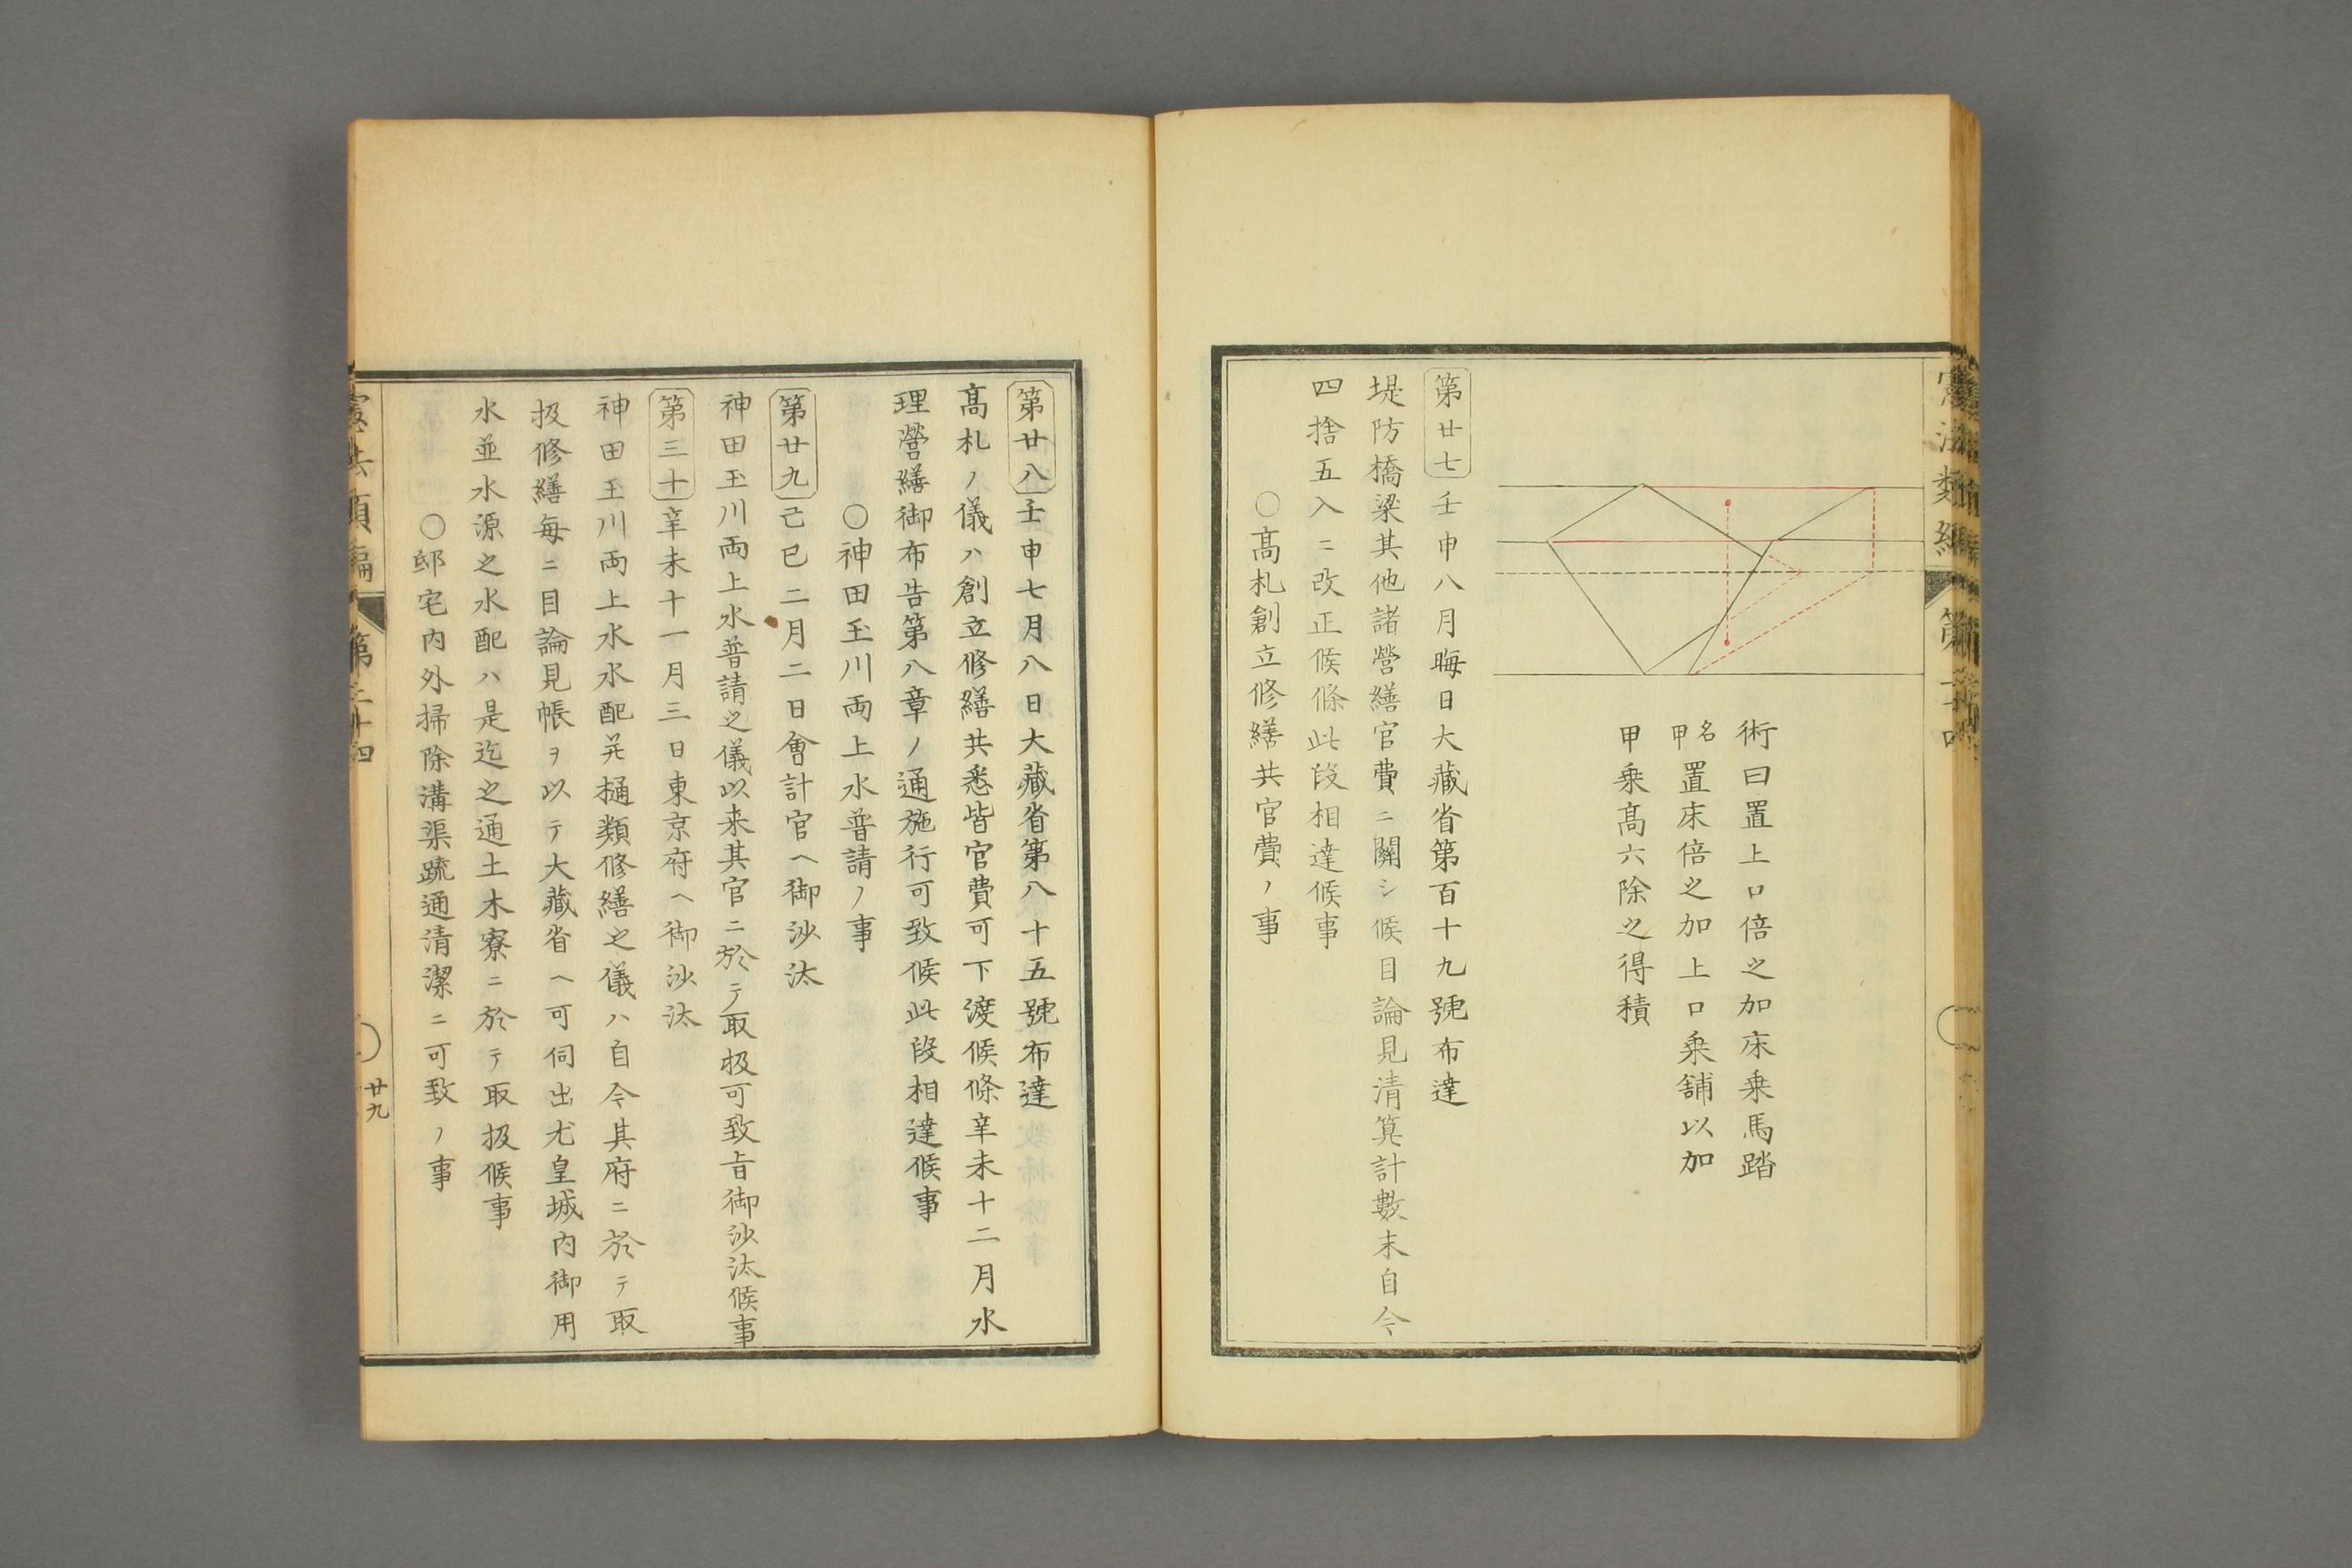 術曰置上口倍之加床乗馬踏
名甲置床倍之加上口乗舗以加
甲乗髙六除之得積
第廿七 壬申八月晦日大藏省第百十九號布達
堤防橋梁其他諸營繕官費ニ關シ候目論見清筭計數末自今
四捨五入ニ改正候條此段相達候事
○髙札創立修繕共官費ノ事
第廿八 壬申七月八日大藏省第八十五號布達
髙札ノ儀ハ創立修繕共悉皆官費可下渡候條辛未十二月水
理營繕御布告第八章ノ通施行可致候此段相達候事
○神田玉川両上水普請ノ事
第廿九 己巳二月二日會計官ヘ御沙汰
神田玉川両上水普請之儀以来其官ニ於テ取扱可致旨御沙汰候事
第三十 辛未十一月三日東京府ヘ御沙汰
神田玉川両上水水配并樋類修繕之儀ハ自今其府ニ於テ取
扱修繕毎ニ目論見帳ヲ以テ大藏省ヘ可伺出尤皇城内御用
水並水源之水配ハ是迄之通土木寮ニ於テ取扱候事
○邸宅内外掃除溝渠疏通清潔ニ可致ノ事
廿九